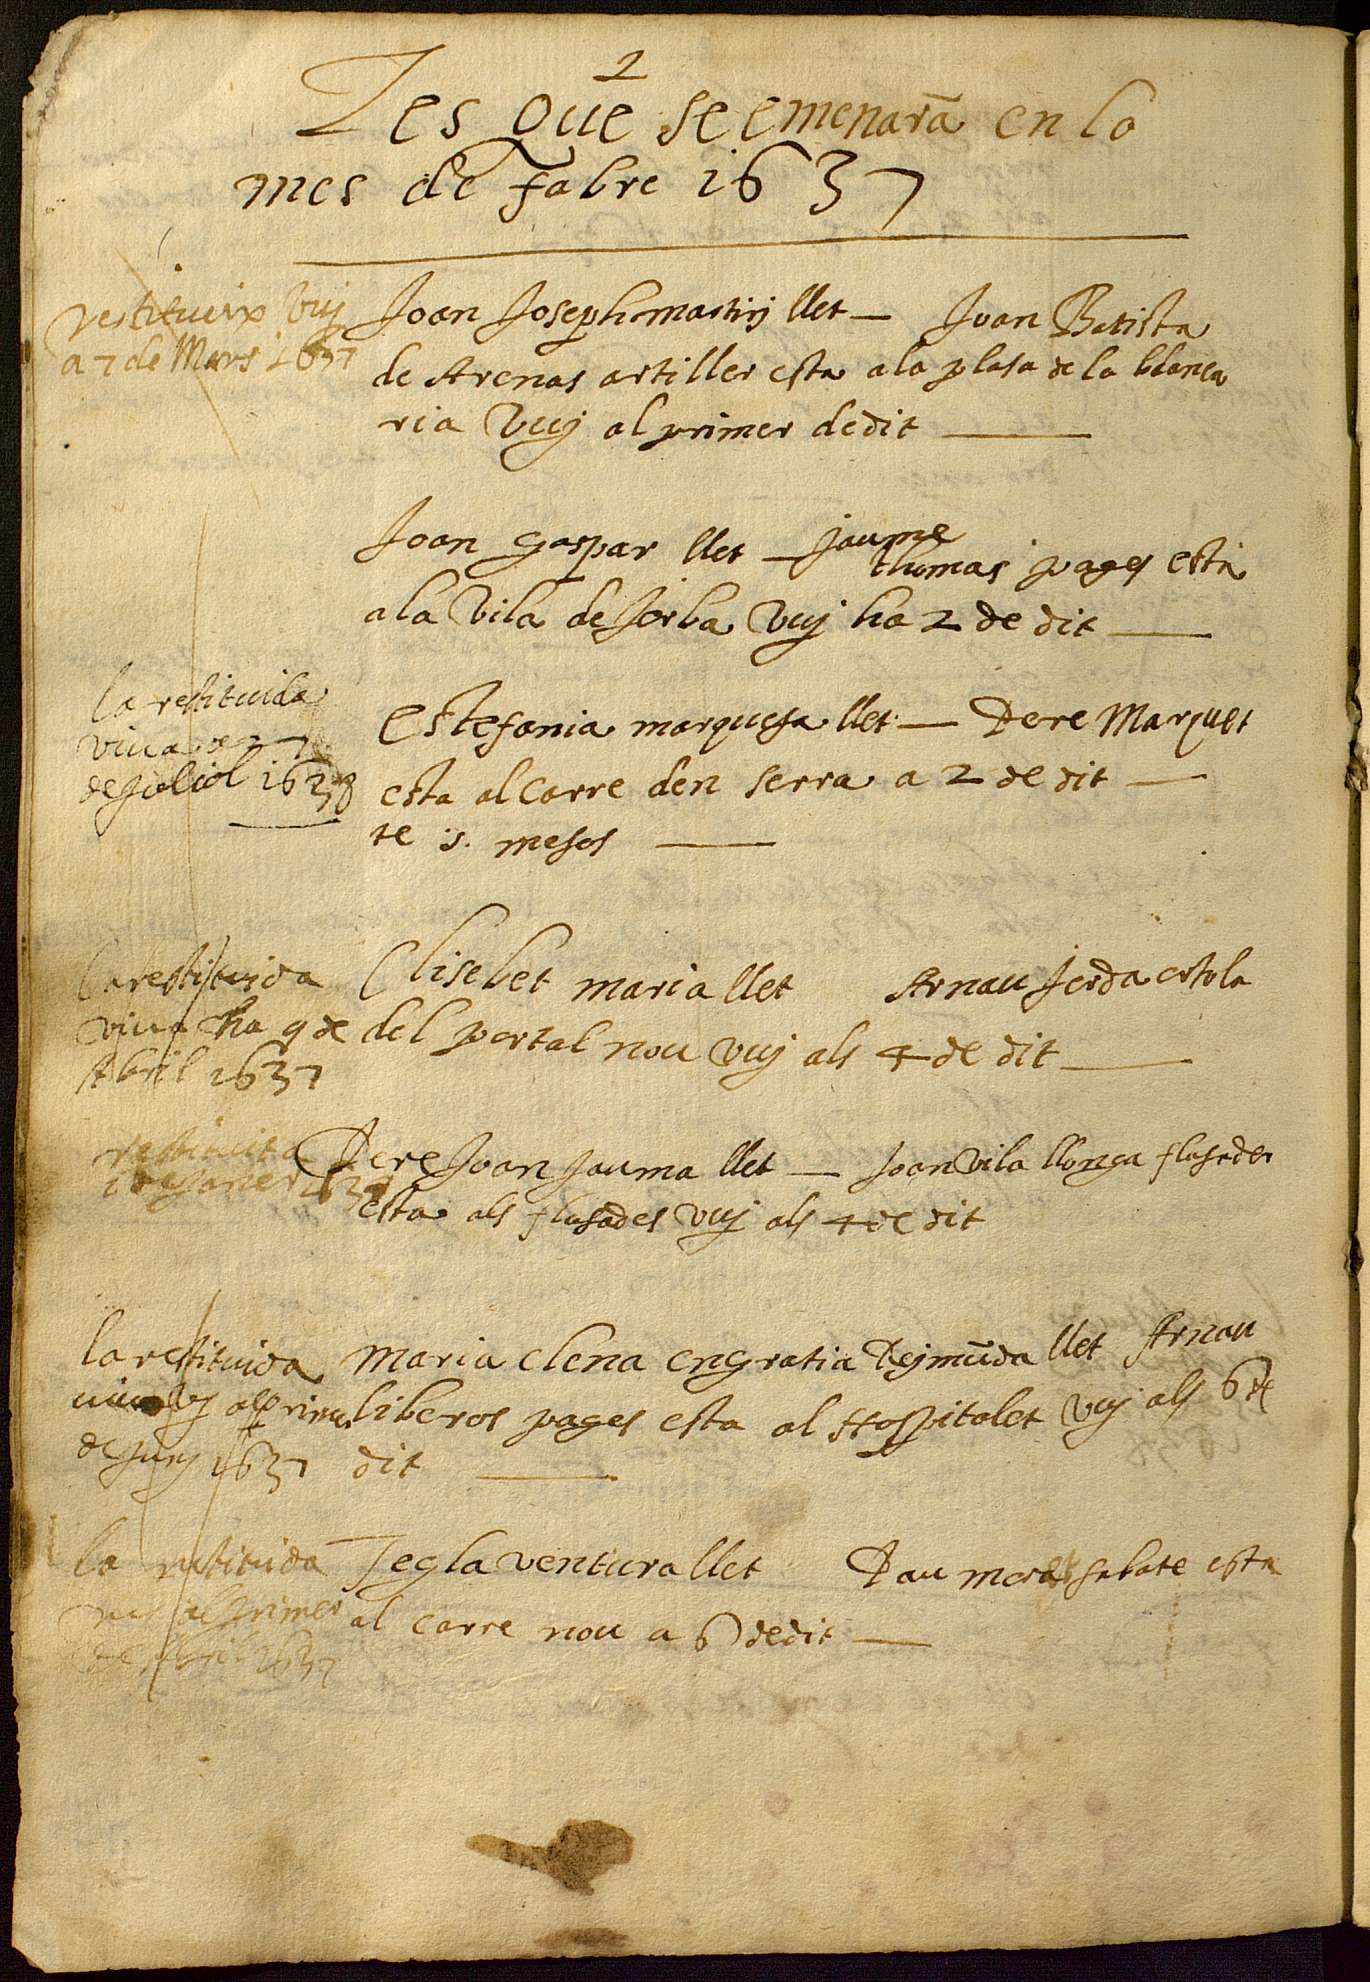 2
Les que se emenarā en lo
mes de fabre 1637
restituix vuj
a 7 de Mars 1637
Joan Joseph martij llet — Juan Batista
de Arenas artiller esta a la plasa de la blanca
ria vuj al primer de dit —
Joan Gaspar llet — jaume
thomas pages esta
a la vila de Jorba vuj ha 2 de dit —
la restituida
viua a 7
de Joliol 1638
Estefania marquesa llet — Pere Marquet
esta al carre den serra a 2 de dit —
te mesos —
la restituida
viua ha 9 de
Abril 1637
Elisebet maria llet Arnau Jerda ortola
del portal nou vuj als 4 de dit —
restituita
Janer 1637
Pere Joan Jauma llet — Joan vila llonga flasader
esta als flasades vuj als 4 de dit
la restituida
viua vuj al primer
de Juny 1637
Maria elena engratia Rejmūda llet Arnau
liberos pages esta al Hospitalet vuj als 6 de
dit —
la restituida
al primer
de Abril 1637
Tegla ventura llet Pau sabate esta
al carre nou a 6 de dit —